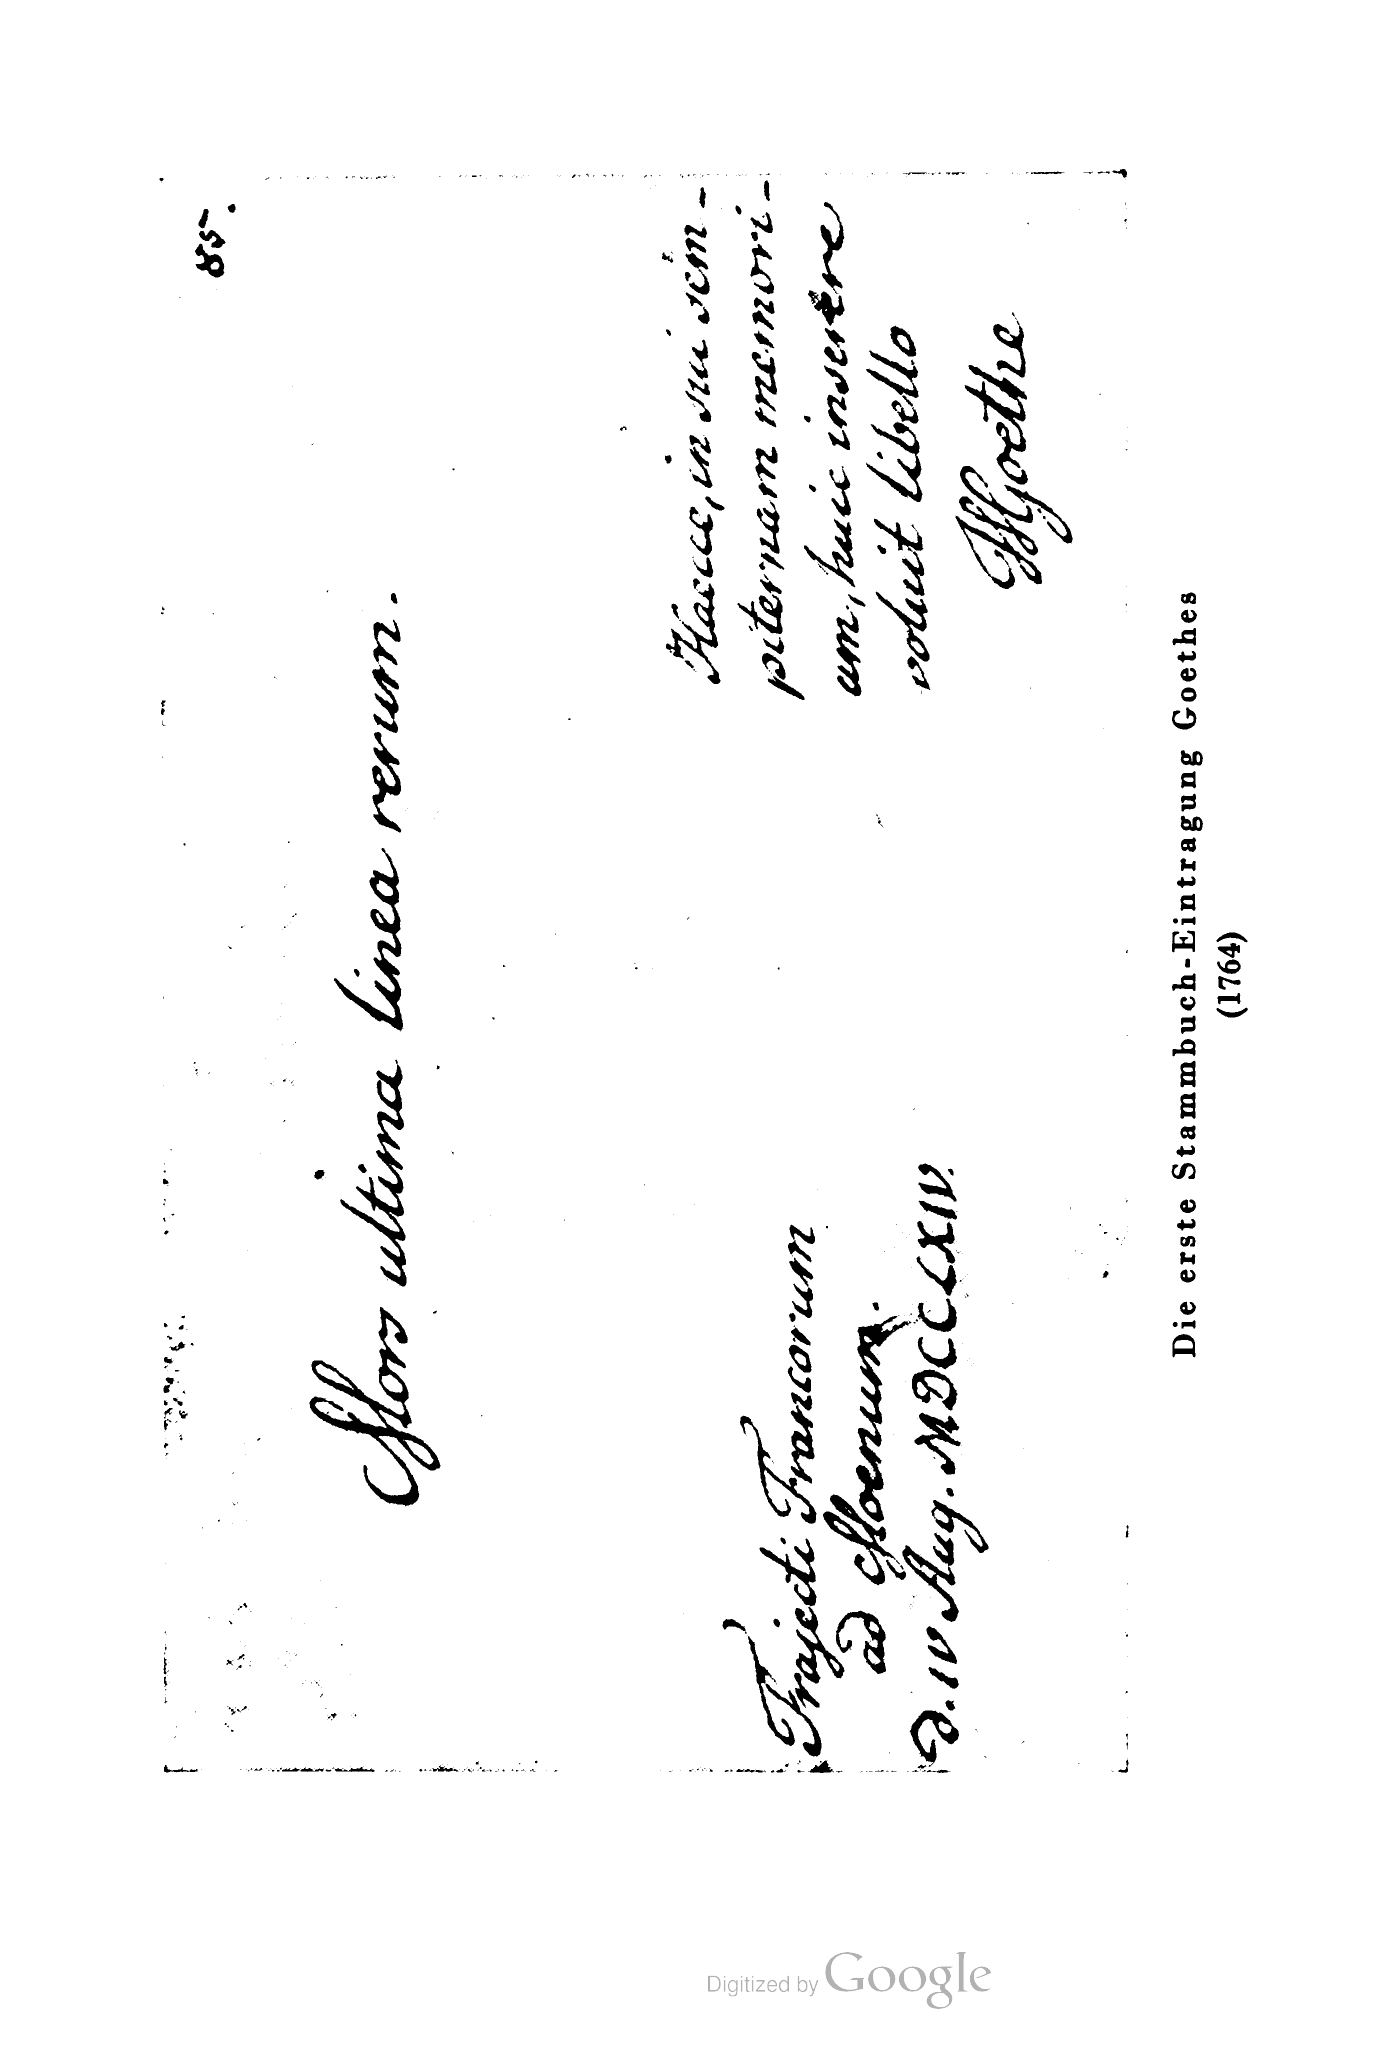 85.
Mors ultima linea rerum.
Trajecti Francorum
ad Moenum.
D. IV Aug. MDCCLXIV.
Haecce, in sui sem-
piternam memori-
am, huic inserere
voluit libello
JWGoethe
Die erste Stammbuch-Eintragung Goethes
(1764)
Digitized by Google